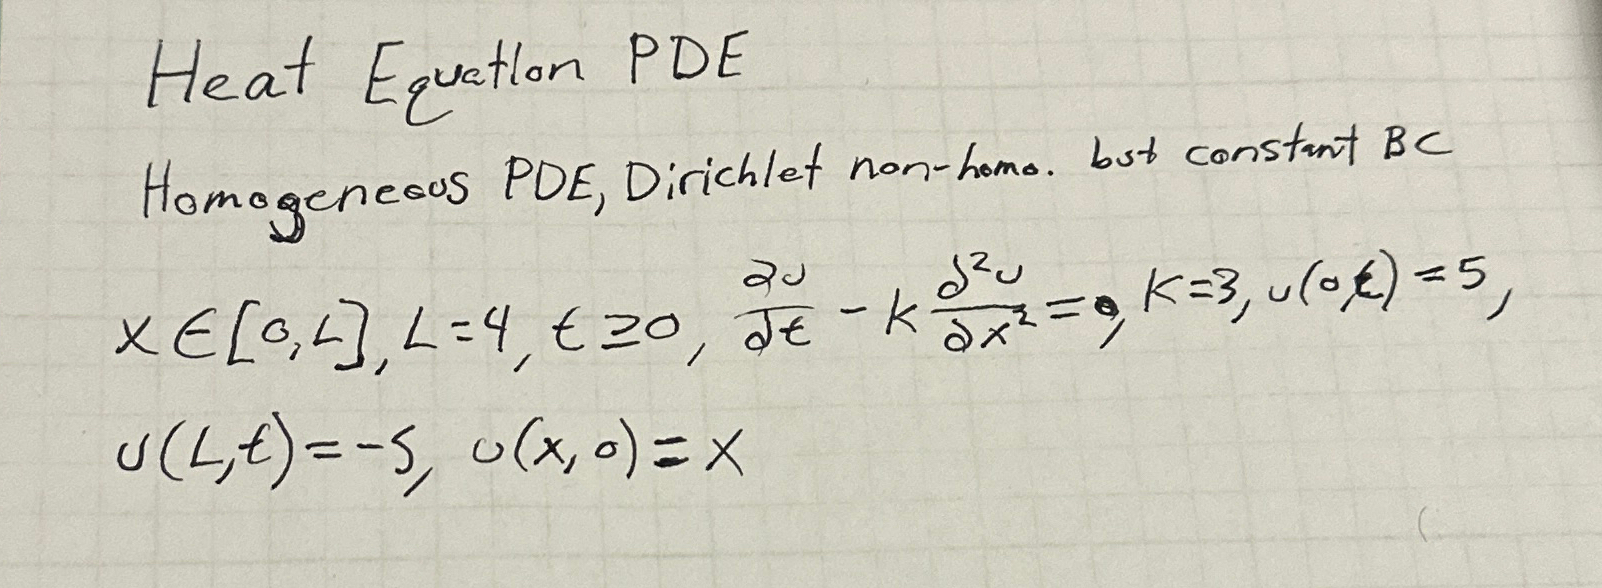 Heat Equation PDE
Homogeneous PDE, Dirichlet non-homo. but constant BC
x ∈ [0, L], L = 4, t ≥ 0, ∂u/∂t - k ∂²u/∂x² = 0, k = 3, u(0,t) = 5,
u(L,t) = -5, u(x, 0) = x